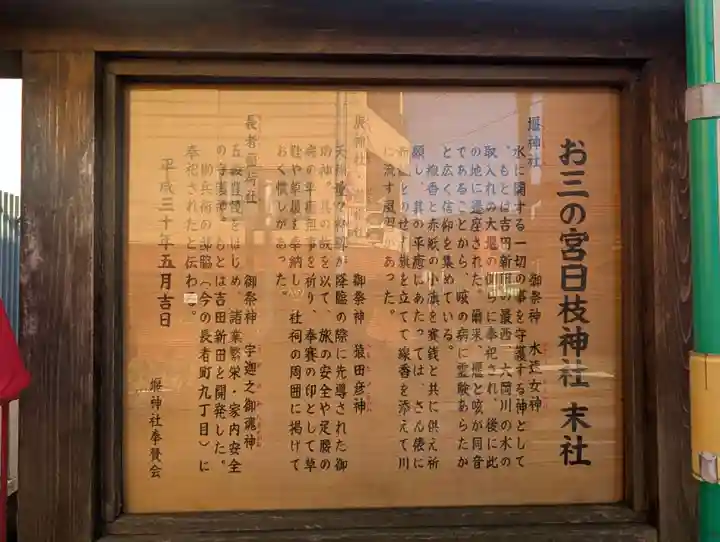 お三の宮日枝神社 末社
堰神社
御祭神 水波女神
水に関する一切の事を守護する神として
、もとは吉田新田の最西、大岡川の水の
取入れの大堰の側 に奉祀され、後に此
の地に遷座された。爾来、堰と咳が同音
であることから、咳の病に霊験あらたか
と広く信仰を集めている。
線香と赤紙の小旗を賽銭と共に供え祈
願し、其の平癒にあたっては、さん俵に
のせ 旗を立てて線香を添えて川
に流す風習があった。
庚神社
御祭神 猿田彦神
天孫 が降臨の際に先導された御
神。其の故を以て、旅の安全や足腰の
病の平癒 事を祈り、奉賽の印として草
鞋や草履を奉納し 社祠の周囲に掲げて
おく慣しがあった。
長者稲荷社
御祭神 宇迦之御魂神
五穀豊穣をはじめ、諸業繁栄・家内安全
の守護神。もとは吉田新田を開発した。
勘兵衛の邸脇(今の長者町九丁目)に
奉祀されたと伝わる。
平成三十年五月吉日
堰神社奉賛会